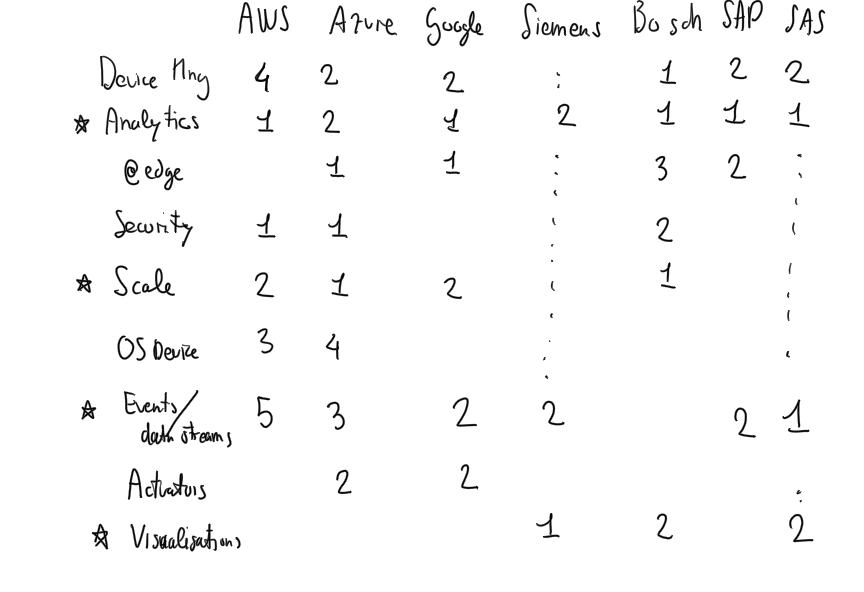 AWS Azure Google Siemens Bosch SAP SAS
Device Mng 4 2 2 : 1 2 2
☆ Analytics 1 2 1 2 1 1 1
@edge 1 1 : 3 2 :
Security 1 1 2
☆ Scale 2 1 2 1
OS Device 3 4
☆ Events/ 5 3 2 2 2 1
data streams
Actuators 2 2 :
☆ Visualisations 1 2 2